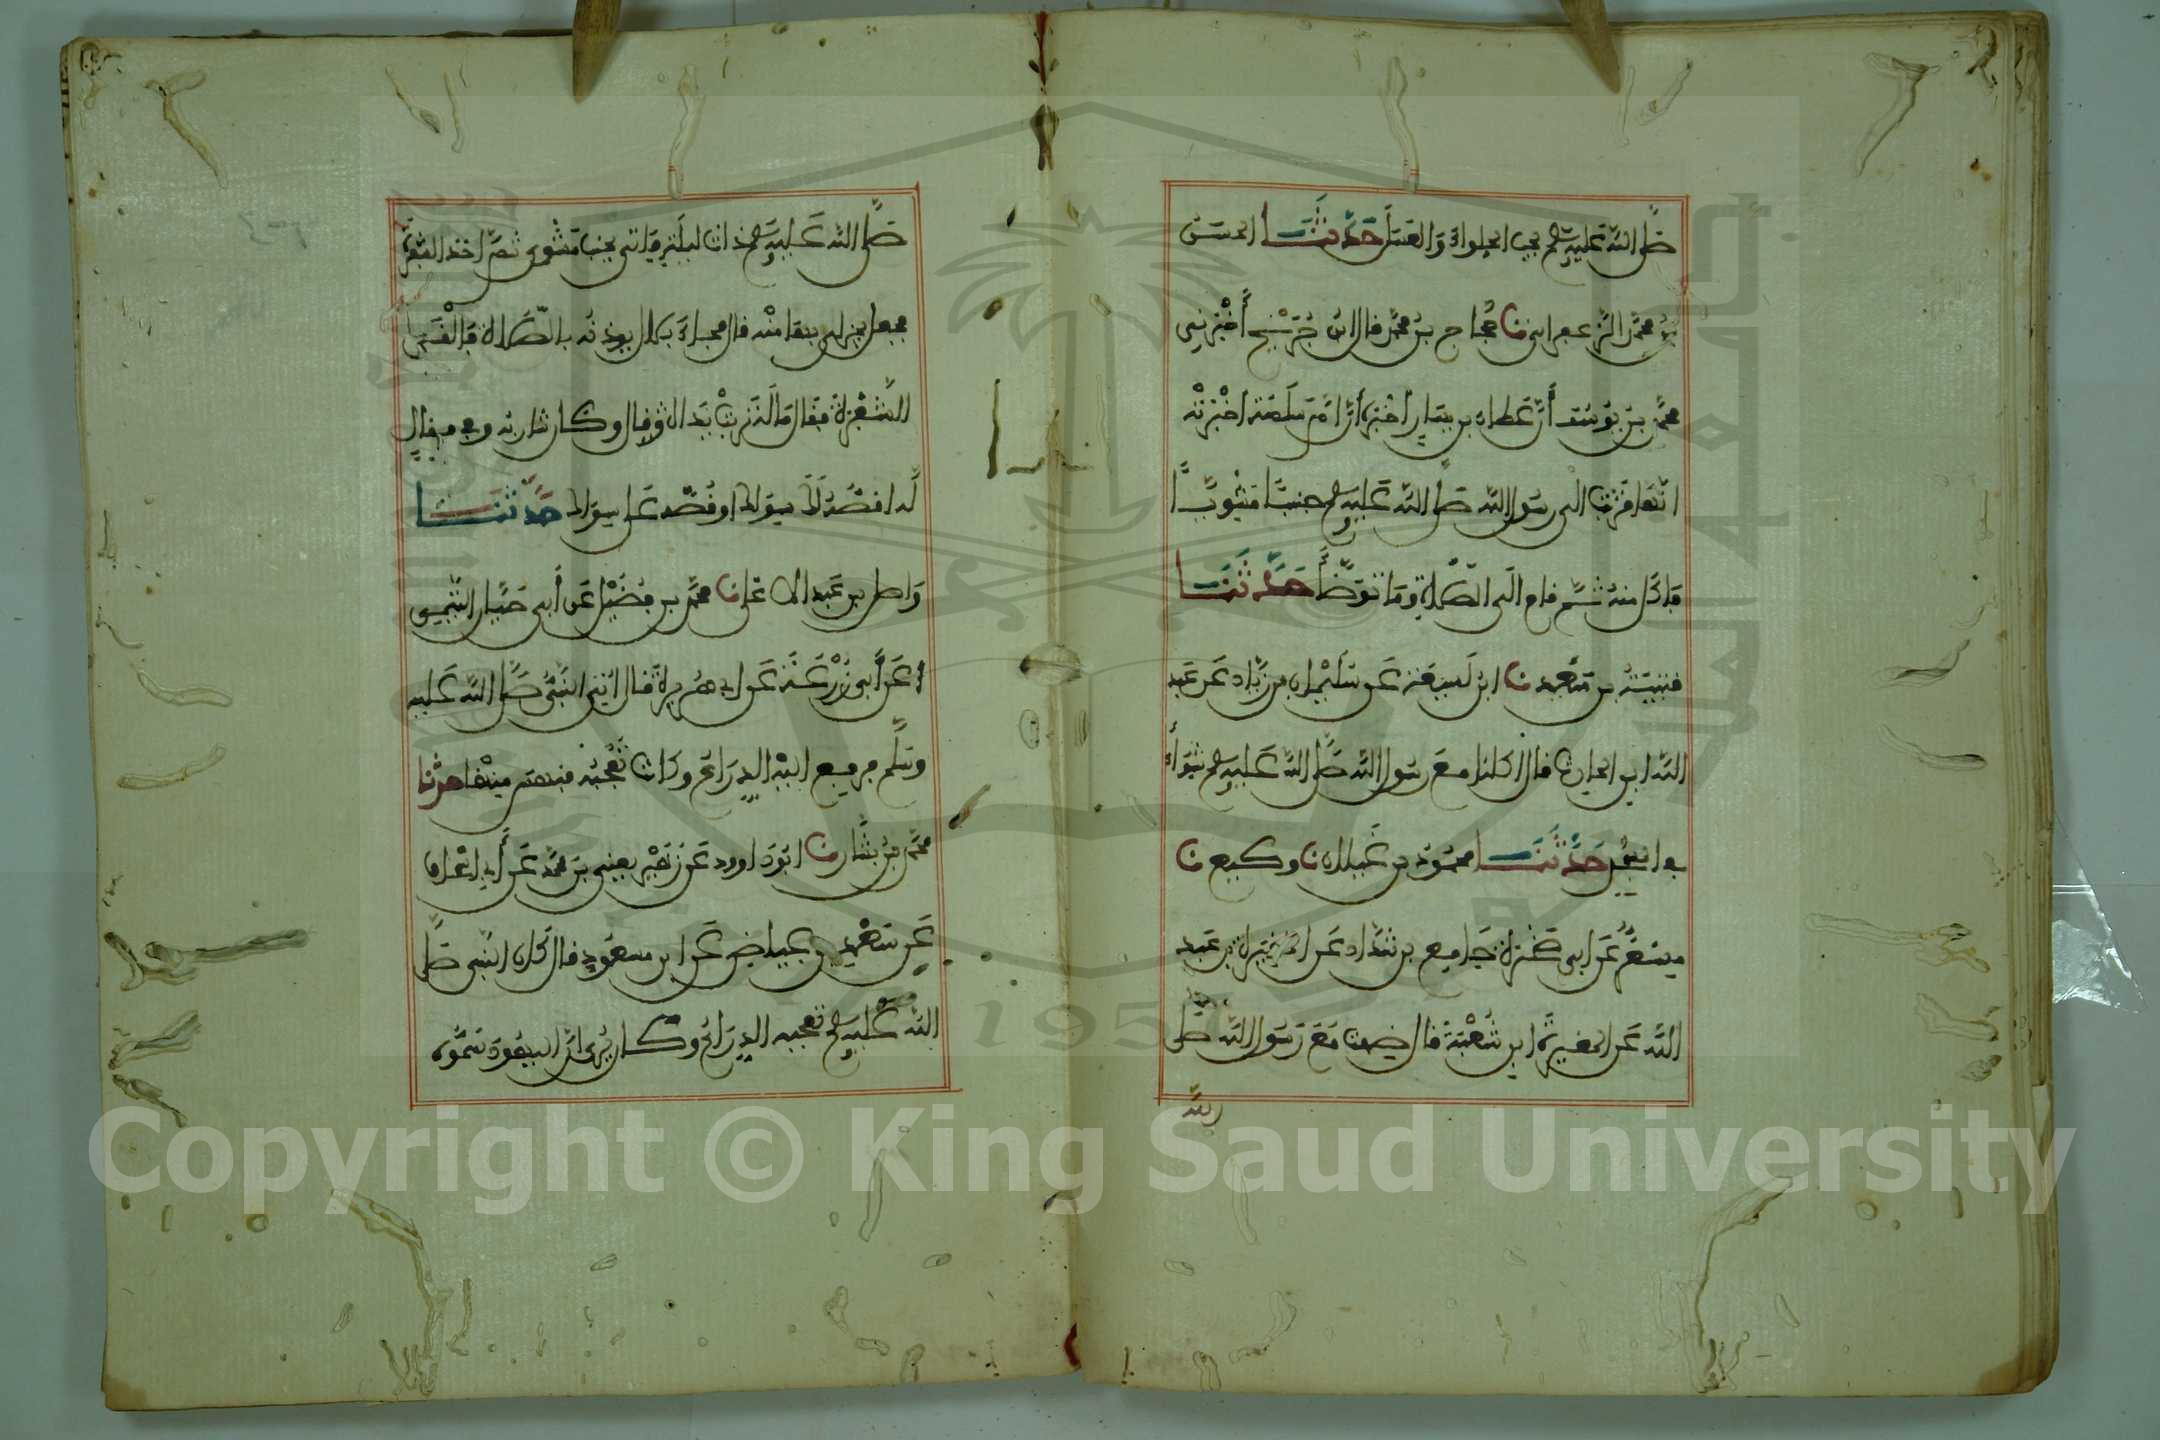 صلى الله عليه وسلم يحب الحلواء والعسل حدثنا الحسن
بن محمد الزعفراني نا حجاج بن محمد قال ابن جريج أخبرني
محمد بن يوسف أن عطاء بن يسار أخبره أن أم سلمة اخبرته
انها قربت الى رسول الله صلى الله عليه وسلم جنبا مشويا
فاكل منه ثم قام الى الصلاة وما توضأ حدثنا
قتيبة بن سعيد نا ابن لهيعة عن سليمان بن زياد عن عبد
الله ابن الحارث قال اكلنا مع رسول الله صلى الله عليه وسلم شواء
في المسجد حدثنا محمود بن غيلان نا وكيع نا
مسعر عن ابى صخرة جامع بن شداد عن المغيرة بن عبد
الله عن المغيرة ابن شعبة قال ضفت مع رسول الله صلى
الله
صلى الله عليه وسلم ذات ليلة فاتى بجنب مشوى ثم اخذ الشفرة
فجعل يحز لى بها منه قال فجاء بلال يوذنه بالصلاة فالقى
الشفرة فقال ما له تربت يداه قال وكان شاربه وفى فقال
له اقصه لك على سواك او قصه على سواك حدثنا
واصل بن عبد الاعلى نا محمد بن فضيل عن أبى حيان التيمى
عن أبى زرعة عن ابى هريرة قال اتي النبى صلى الله عليه
وسلم فرفع اليه الذراع وكانت تعجبه فنهس منها حدثنا
محمد بن بشار نا ابو داوود عن زهير يعنى بن محمد عن أبى اسحاق
عن سعد بن عياض عن ابن مسعود قال كان النبى صلى
الله عليه وسلم تعجبه الذراع وكان يرى ان اليهود سموه
Copyright © King Saud University
1957